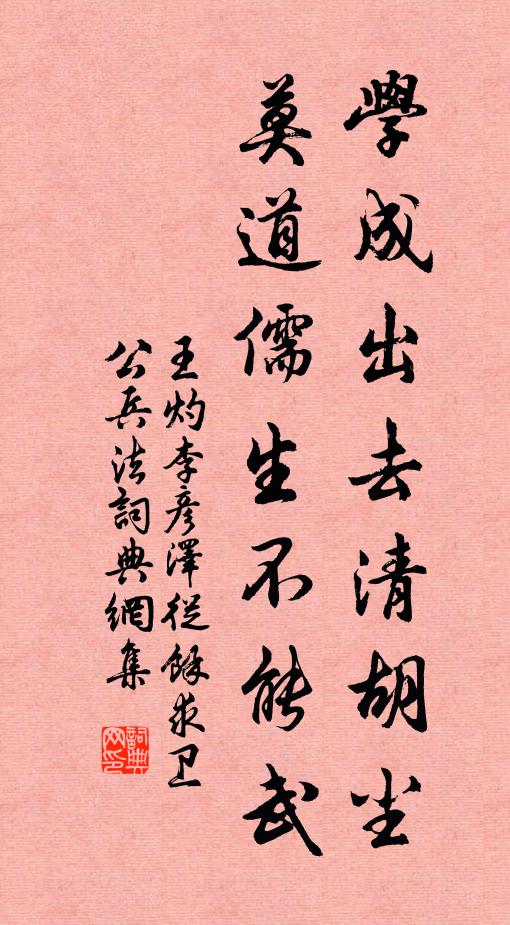 學成出去清胡尘
莫道儒生不能武
王灼李彦澤從餘求卫
公兵法詞典網集
詞典网印